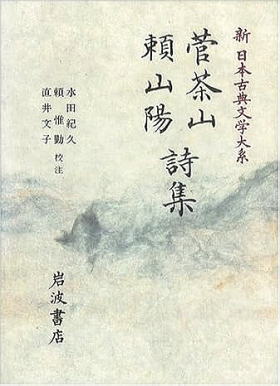 新日本古典文学大系
菅茶山
頼山陽
詩集
水田紀久
頼惟勤 校注
直井文子
岩波書店